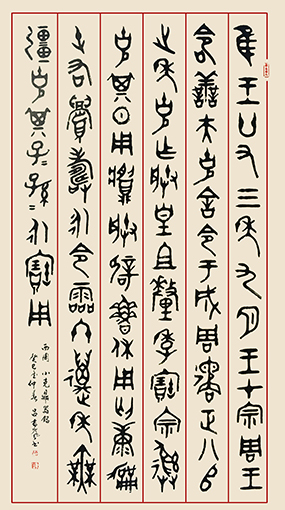 隹王廿又三年九月王才宗周王
令善夫克舍令于成周遹正八𠂤
之年克乍朕皇且釐季寶宗彝
克其日用𩰫朕辟魯休用匄康勵
屯右眉壽永令霝冬邁年無
疆克其子=孫=永寶用
西周 小克鼎
癸巳 仲春